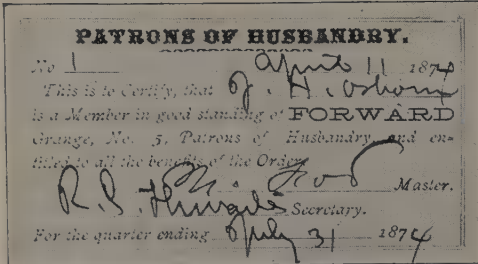 PATRONS OF HUSBANDRY.
No 1 April 11 1874
This is to Certify, that J. H. Osborn
is a Member in good standing of FORWARD
Grange, No. 5, Patrons of Husbandry and en-
titled to all the benefits of the Order.
Master.
R. S. Secretary.
For the quarter ending July 31 1874